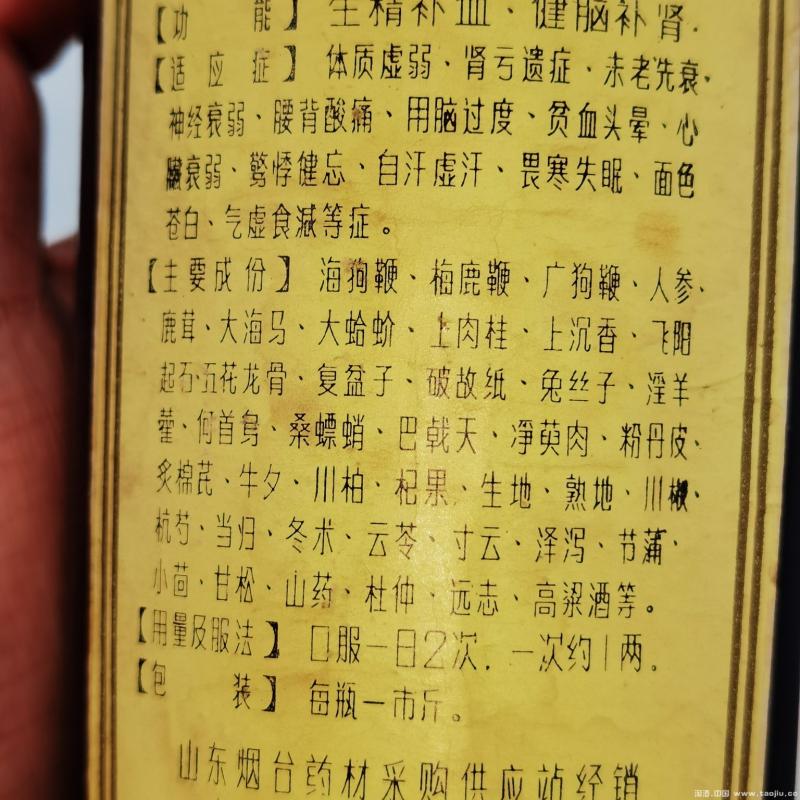 【功能】生精补血、健脑补肾.
【适应症】体质虚弱、肾亏遗症、未老先衰、
神经衰弱、腰背酸痛、用脑过度、贫血头晕、心
臓衰弱、驚悸健忘、自汗虚汗、畏寒失眠、面色
苍白、气虚食减等症。
【主要成份】海狗鞭、梅鹿鞭、广狗鞭、人参、
鹿茸、大海马、大蛤蚧、上肉桂、上沉香、飞阳
起石、五花龙骨、复盆子、破故纸、兔丝子、淫羊
藿、何首乌、桑螵蛸、巴戟天、净萸肉、粉丹皮、
炙棉芪、牛夕、川柏、杞果、生地、熟地、川椒、
杭芍、当归、冬术、云苓、寸云、泽泻、节蒲、
小茴、甘松、山药、杜仲、远志、高粱酒等。
【用量及服法】口服一日2次,一次约1两。
【包装】每瓶一市斤。
山东烟台药材采购供应站经销
淘酒.中国 www.taojiu.co